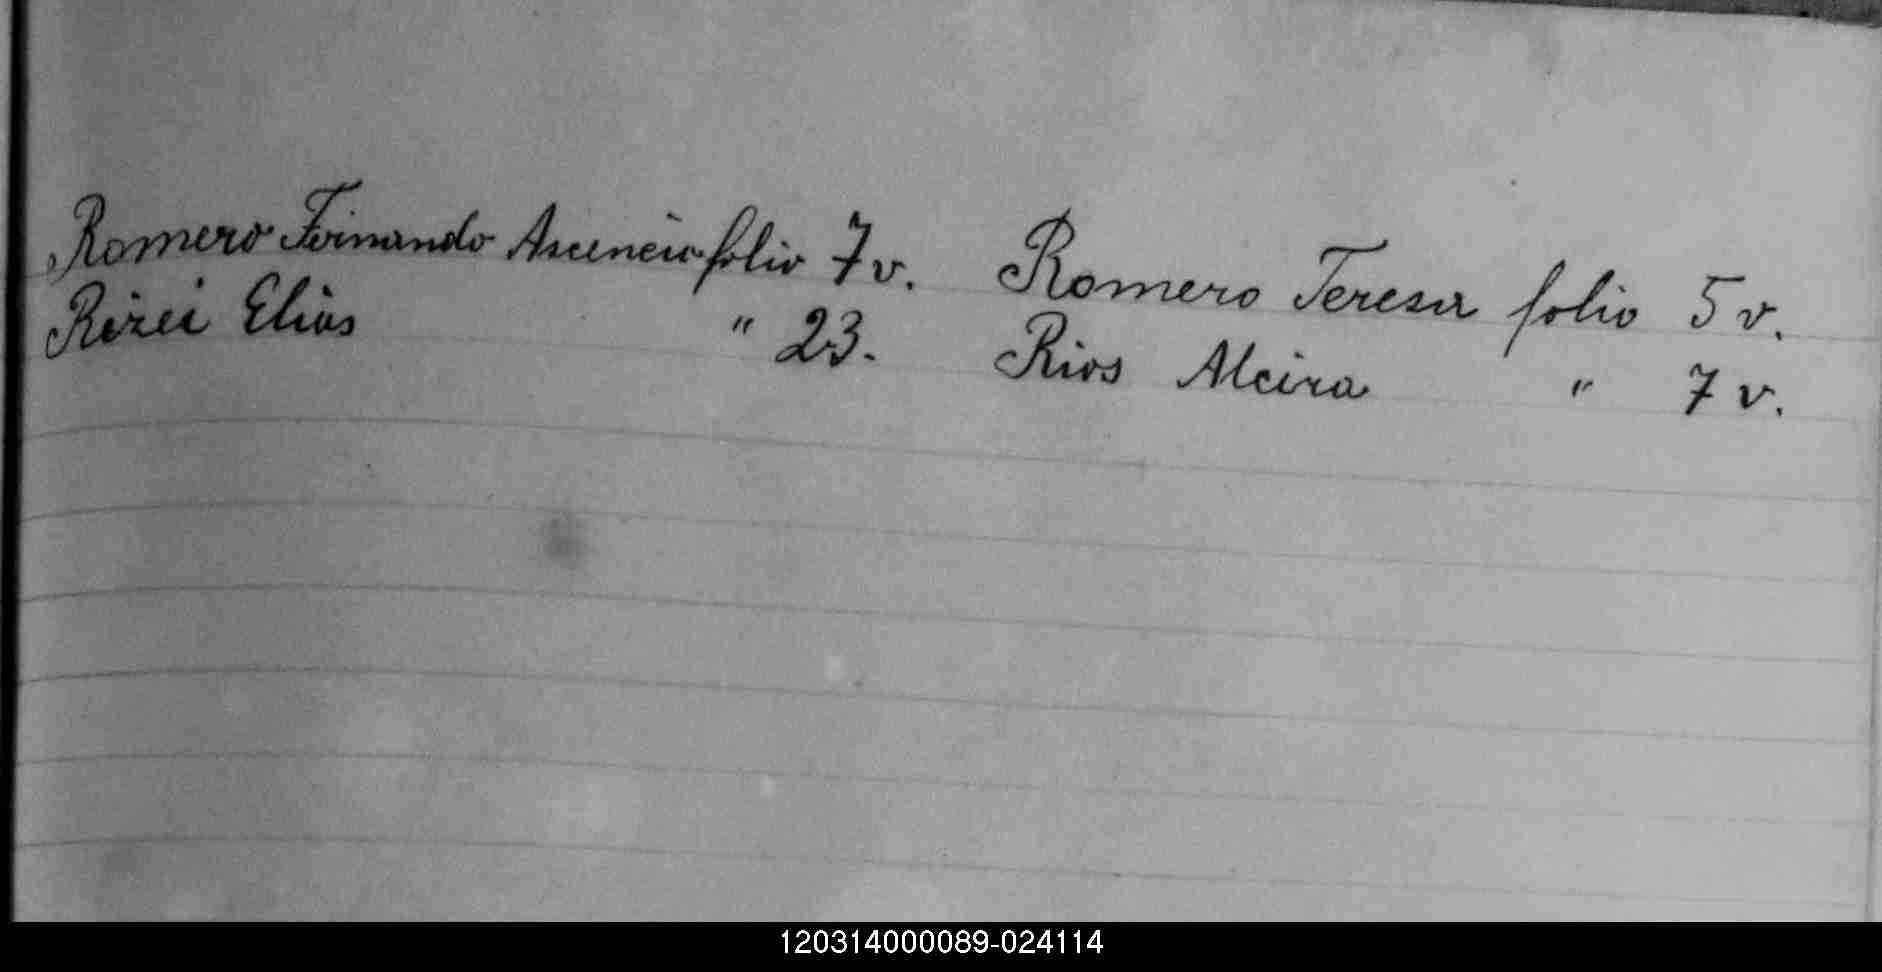 Romero Fernando Ascencio folio 7 v. Romero Teresa folio 5 v.
Elias " 23. Rios Alcira " 7 v.
120314000089-024114